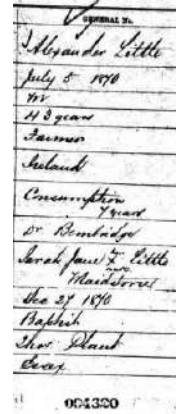 GENERAL No.
Alexander Little
July 5 1870
M
43 years
Farmer
Ireland
Consumption
7 years
Dr Bembridge
Sarah Jane Little
Dec 27 1870
Baptist
Thos Plant
Essex
004320